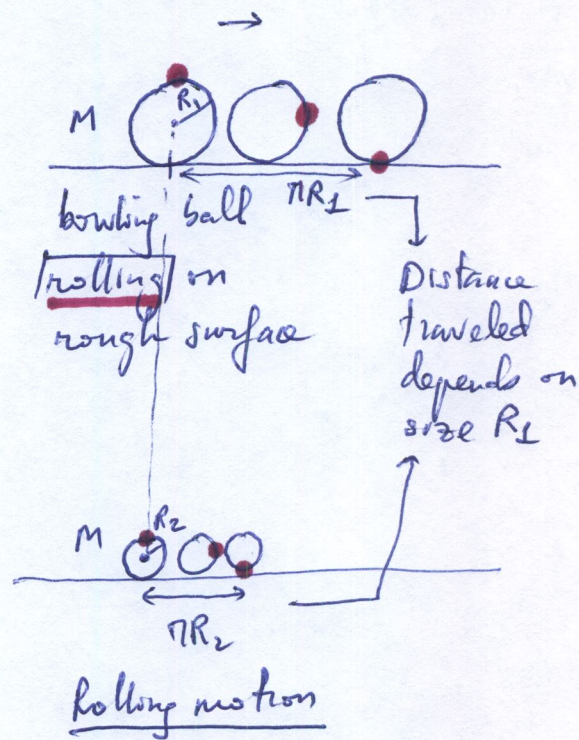 R1
M
πR1
bowling ball
rolling on
rough surface
Distance
traveled
depends on
size R1
R2
M
πR2
Rolling motion